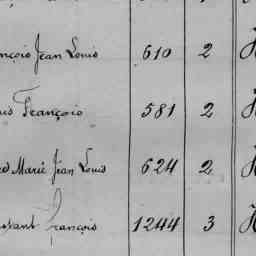 nçois Jean Louis 610 2
François 581 2
Marie Jean Louis 624 2
François 1244 3